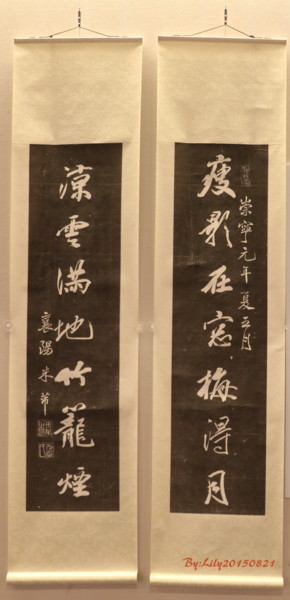 瘦影在窓梅得月
崇寧元年夏五月
涼雲滿地竹籠煙
襄陽米芾
By:Lily20150821